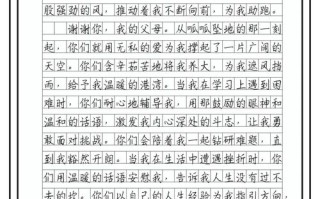 股强劲的风，推动着我不断向前，为我助跑。
谢谢你，我的父母。从呱呱坠地的那一刻
起，你们就用无私的爱为我撑起了一片广阔的
天空。你们含辛茹苦地将我养大，为我遮风挡
雨，给予我温暖的港湾。当我在学习上遇到困
难时，你们耐心地辅导我，用那鼓励的眼神和
温和的话语，激发我内心深处的斗志，让我勇
敢面对挑战。你们会陪着我一起钻研难题，直
到我豁然开朗。当我在生活中遭遇挫折时，你们
用温暖的话语安慰我，告诉我人生没有过不
去的坎。你们以自己的人生经验为我指引方向，